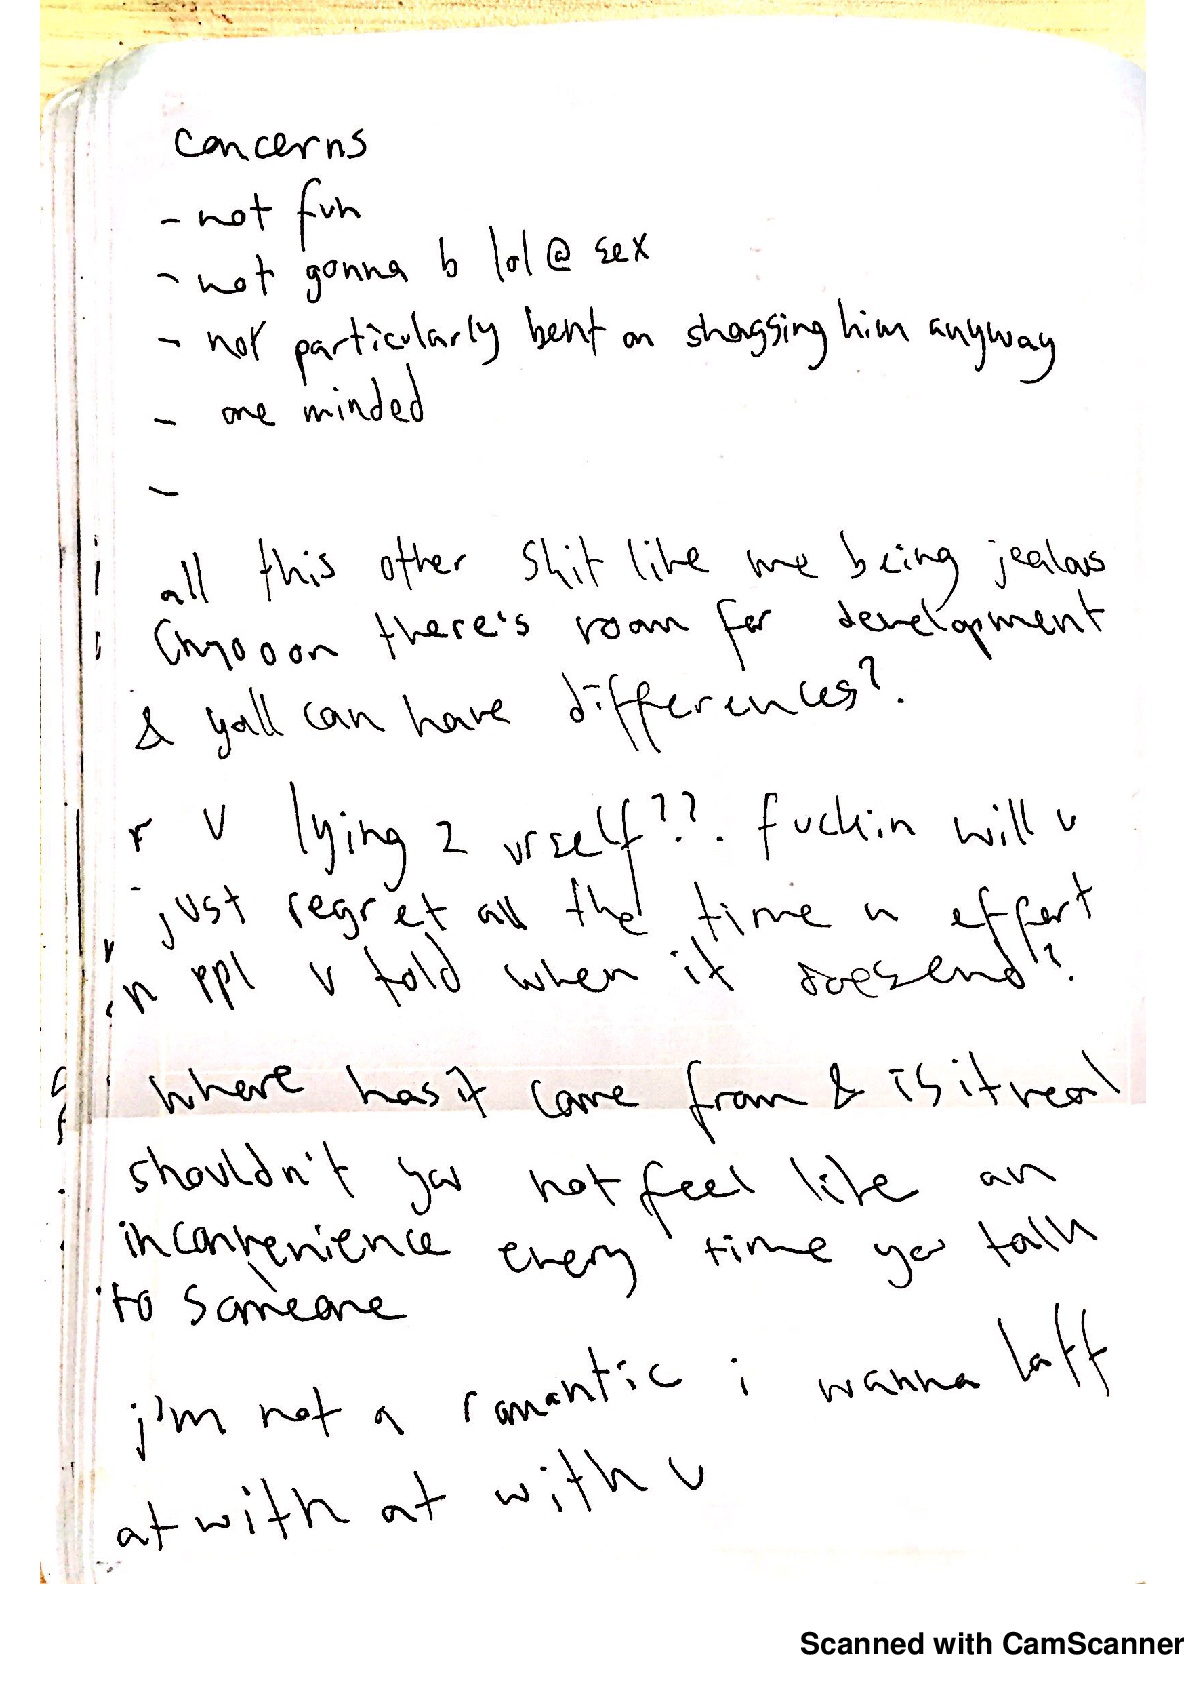 concerns
- not fun
- not gonna b lol @ sex
- not particularly bent on shagging him anyway
- one minded
-
all this other shit like me being jealous
there's room for development
& yall can have differences?.
r u lying 2 urself??. fuckin will u
just regret all the time n effort
n ppl u told when it does end?.
where has it came from & is it real
shouldn't you not feel like an
inconvenience every time you talk
to someone
i'm not a romantic i wanna laff
at with at with u
Scanned with CamScanner